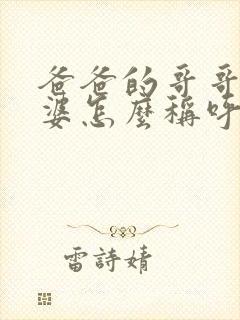 爸爸的哥哥
婆怎麼稱呼
雷詩婧